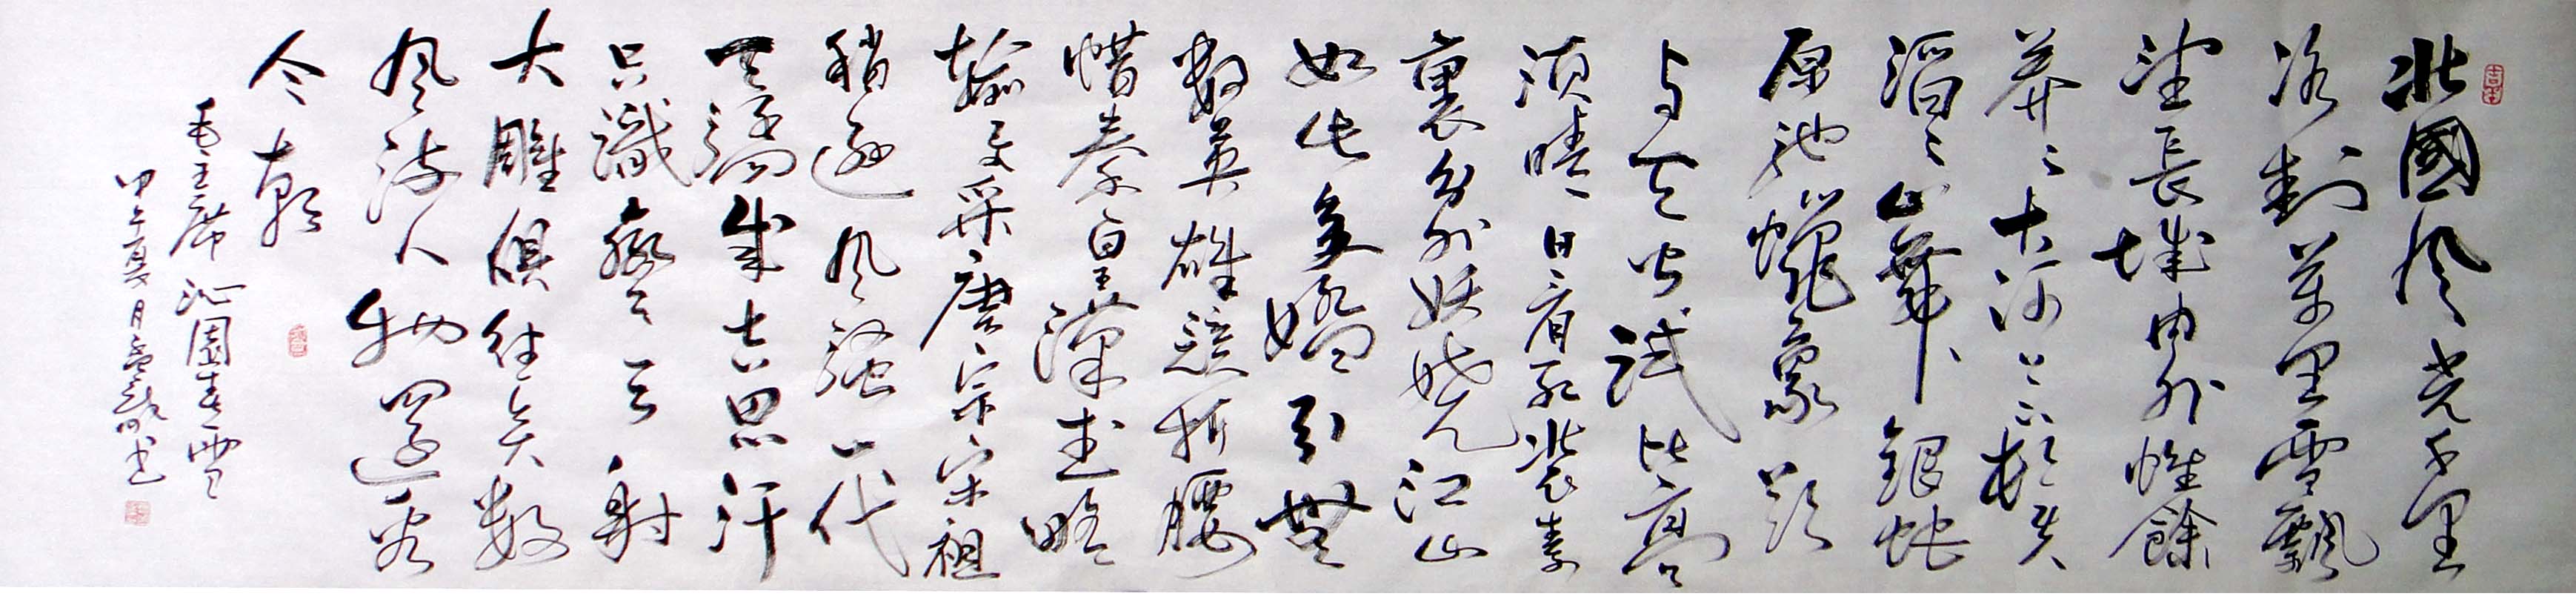 北國风光千里
冰封萬里雪飄
望長城内外惟餘
莽々大河上下頓失
滔々山舞銀蛇
原馳蠟象欲
与天公試比高
須晴日看紅裝素
裹分外妖娆江山
如此多嬌引無
數英雄競折腰
惜秦皇漢武略
輸文采唐宗宋祖
稍遜风騷一代
天驕成吉思汗
只識彎弓射
大雕俱往矣數
风流人物還看
今朝
毛主席沁園春雪
甲午夏月书